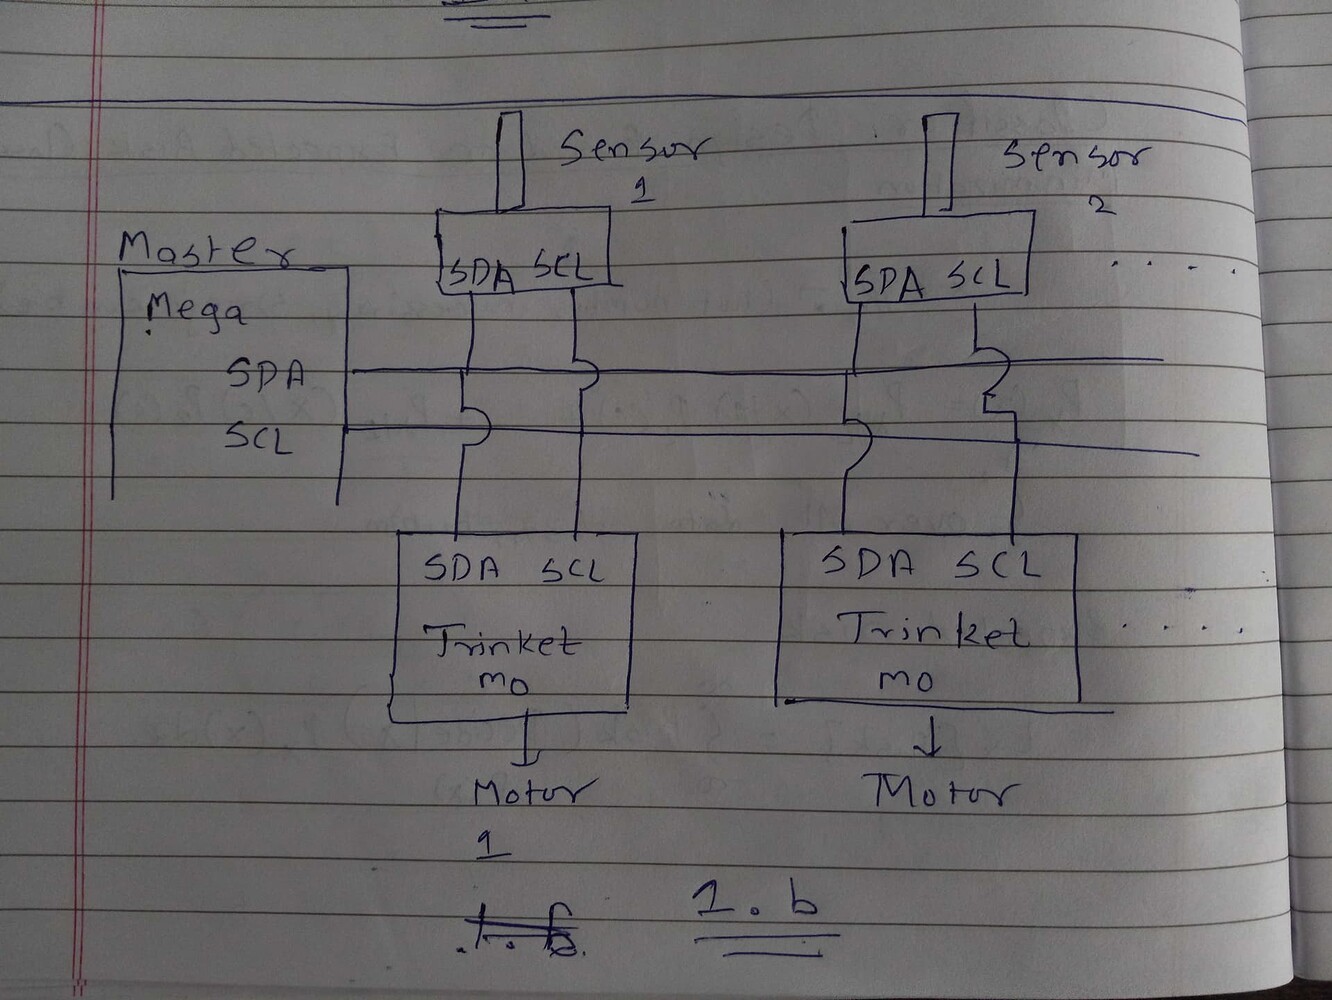 Sensor
1
Sensor
2
Master
Mega
SDA
SCL
SDA SCL
SDA SCL
. . . .
SDA SCL
Trinket
m0
SDA SCL
Trinket
m0
. . . .
Motor
1
Motor
1.b